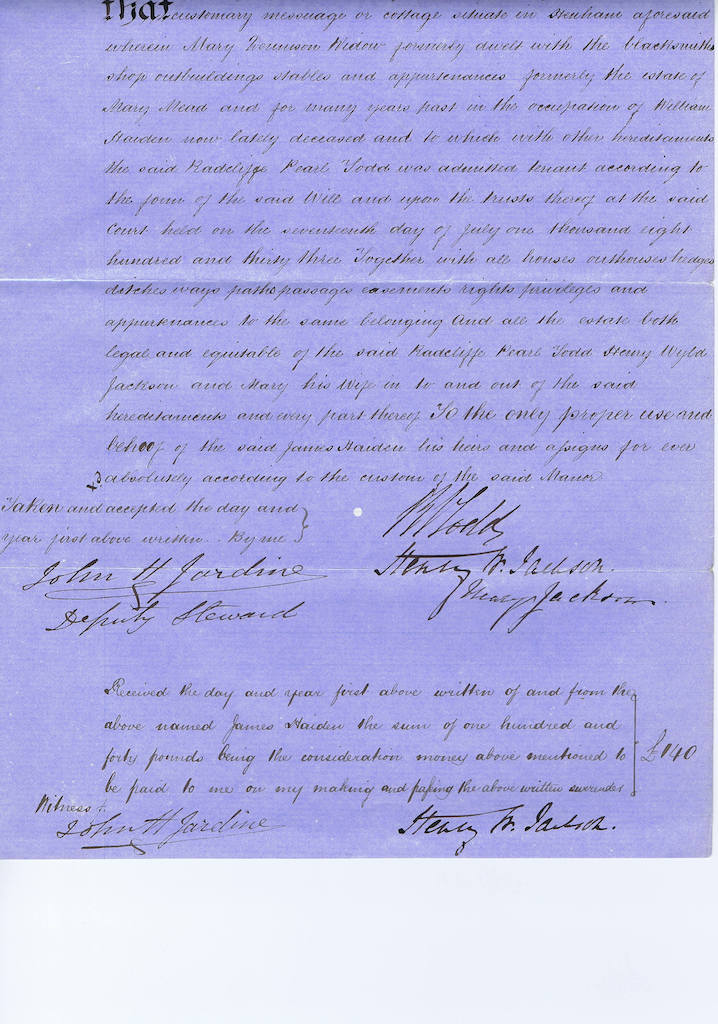 that customary messuage or cottage situate in Stenham aforesaid
wherein Mary Dennison Widow formerly dwelt with the blacksmiths
shop outbuildings stables and appurtenances formerly the estate of
Mary Mead and for many years past in the occupation of William
Haiden now lately deceased and to which with other hereditaments
the said Radcliffe Pearl Todd was admitted tenant according to
the form of the said Will and upon the trusts thereof at the said
Court held on the seventeenth day of July one thousand eight
hundred and thirty three Together with all houses outhouses hedges
ditches ways paths passages easements rights privileges and
appurtenances to the same belonging And all the estate both
legal and equitable of the said Radcliffe Pearl Todd Henry Wybd
Jackson and Mary his Wife in to and out of the said
hereditaments and every part thereof To the only proper use and
behoof of the said James Haiden his heirs and assigns for ever
absolutely according to the custom of the said Manor
Taken and accepted the day and
year first above written. By me
R P Todd
John H Jardine
Henry W. Jackson.
Mary Jackson.
Deputy Steward
Received the day and year first above written of and from the
above named James Haiden the sum of one hundred and
forty pounds being the consideration money above mentioned to
£140
be paid to me on my making and passing the above written surrender
Witness
John H Jardine
Henry W. Jackson.